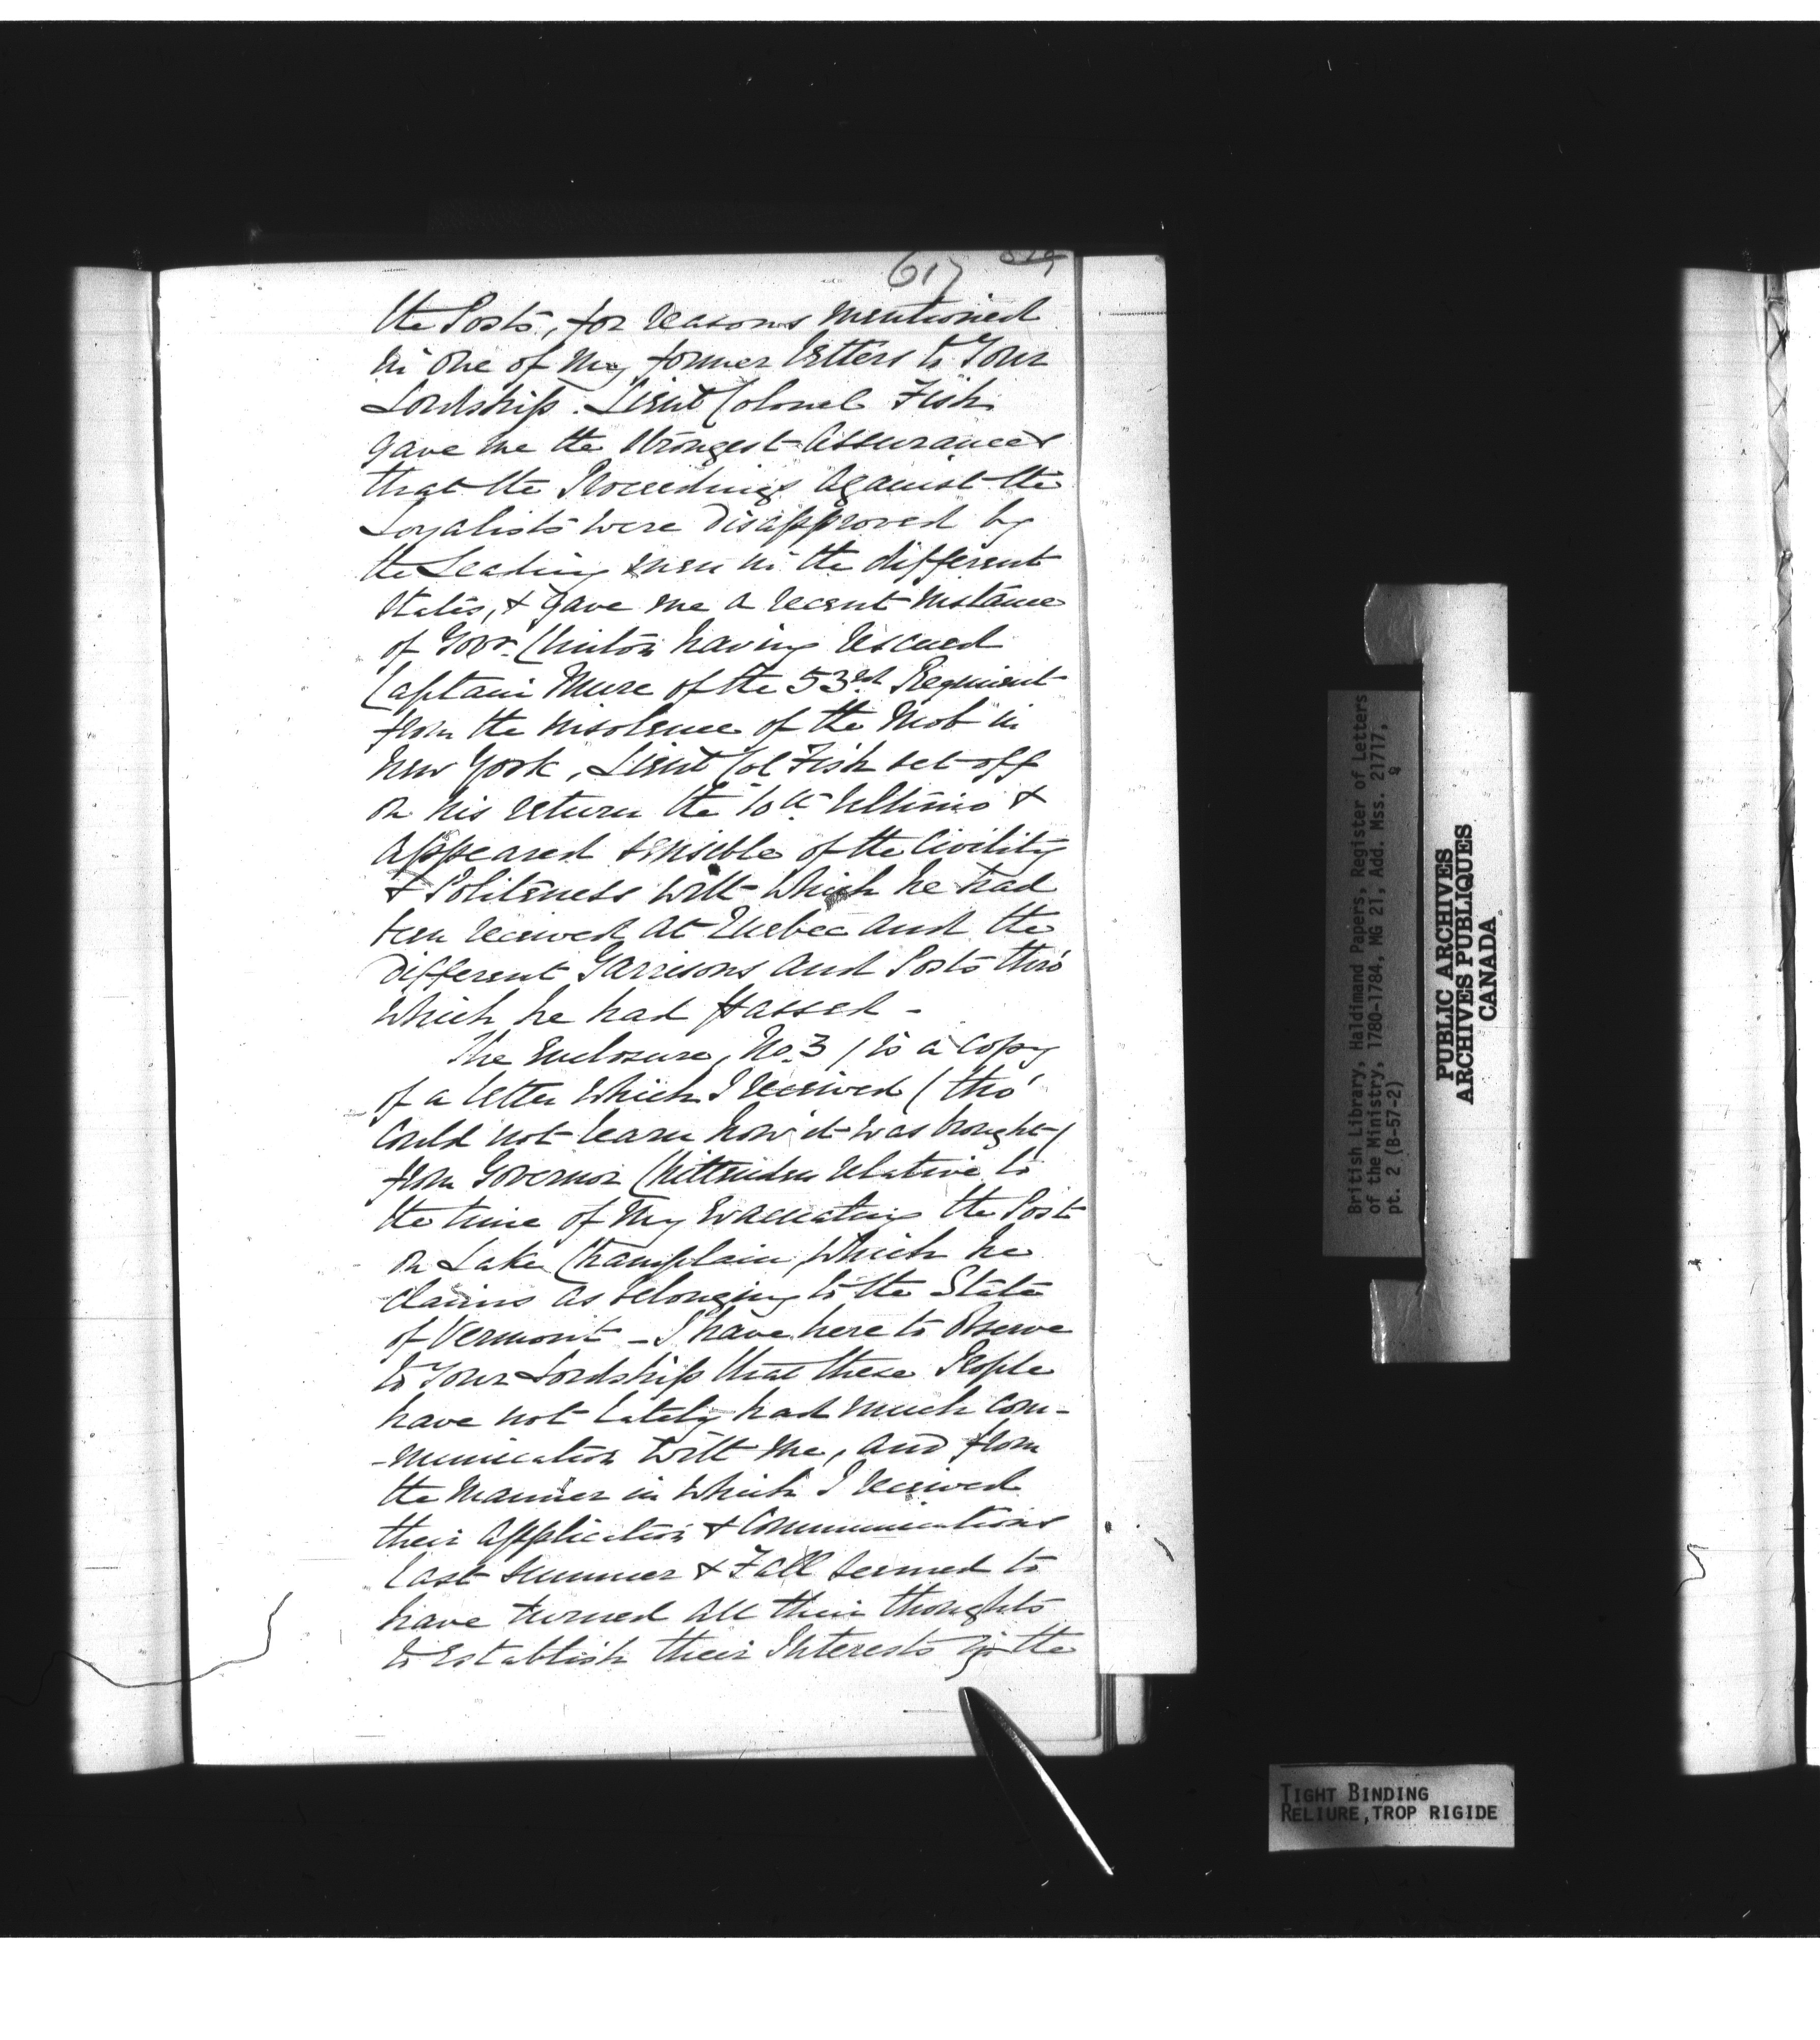 617
the Posts, for reasons mentioned
in one of my former letters to Your
Lordship. Lieut Colonel Fish
gave me the strongest Assurances
that the Proceedings against the
Loyalists were disapproved by
the Leading men in the different
States, & gave me a recent instance
of Govr. Clinton having rescued
Captain Mure of the 53rd Regiment
from the insolence of the Mob in
New York, Lieut Col Fish set off
on his return the 10th Ultimo &
appeared sensible of the Civility
& Politeness with which he had
been received at Quebec and the
different Garrisons and Posts thro'
which he had passed -
The Enclosure, No. 3 / is a Copy
of a letter which I received ( tho'
could not learn how it was brought /
from Governor Chittenden relative to
the time of my Evacuating the Post
on Lake Champlain, which he
claims as belonging to the State
of Vermont - I have here to observe
to Your Lordship that these People
have not lately had much com-
-munication with me, and from
the manner in which I received
their application & Communications
last summer & Fall seemed to
have turned all their thoughts
to establish their Interests in the
British Library, Haldimand Papers, Register of Letters
of the Ministry, 1780-1784, MG 21, Add. Mss. 21717,
pt. 2 (B-57-2)
PUBLIC ARCHIVES
ARCHIVES PUBLIQUES
CANADA
TIGHT BINDING
RELIURE, TROP RIGIDE